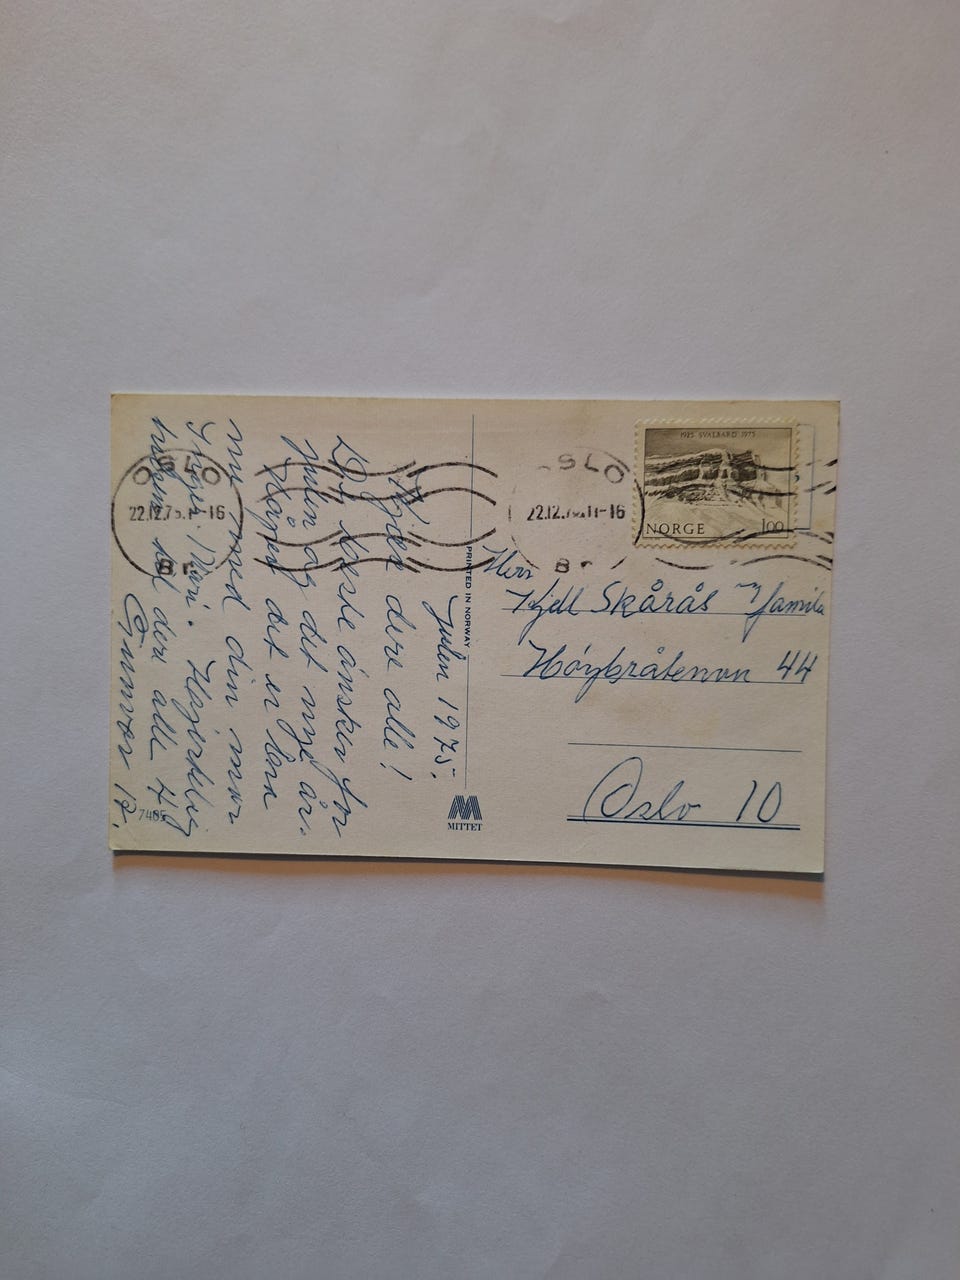 Julen 1975.
Kjære dere alle!
De beste ønsker for
julen og det nye år.
Håper det er bra
nu med din mor
Hjertelig
hilsen til dere alle 4
Gunnvor
7485
PRINTED IN NORWAY
MITTET
OSLO
22.12.75.11-16
Br
OSLO
22.12.75.11-16
Br
1925 SVALBARD 1975
NORGE 100
Herr
Kjell Skårås m/familie
Høybråtenvn 44
Oslo 10